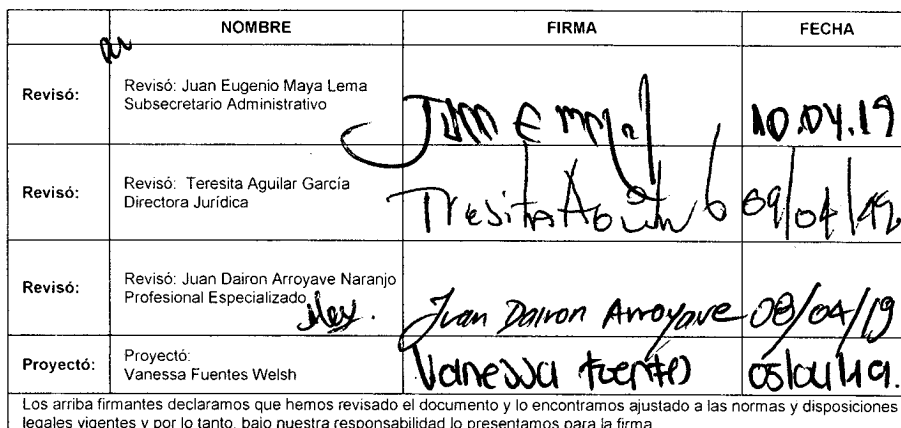 NOMBRE FIRMA FECHA
Revisó: Revisó: Juan Eugenio Maya Lema
Subsecretario Administrativo
Juan E Maya L 10.04.19
Revisó: Revisó: Teresita Aguilar García
Directora Jurídica
Teresita Aguilar G 09/04/19
Revisó: Revisó: Juan Dairon Arroyave Naranjo
Profesional Especializado
Juan Dairon Arroyave 08/04/19
Proyectó: Proyectó:
Vanessa Fuentes Welsh
Vanessa Fuentes 05/04/19.
Los arriba firmantes declaramos que hemos revisado el documento y lo encontramos ajustado a las normas y disposiciones
legales vigentes y por lo tanto, bajo nuestra responsabilidad lo presentamos para la firma